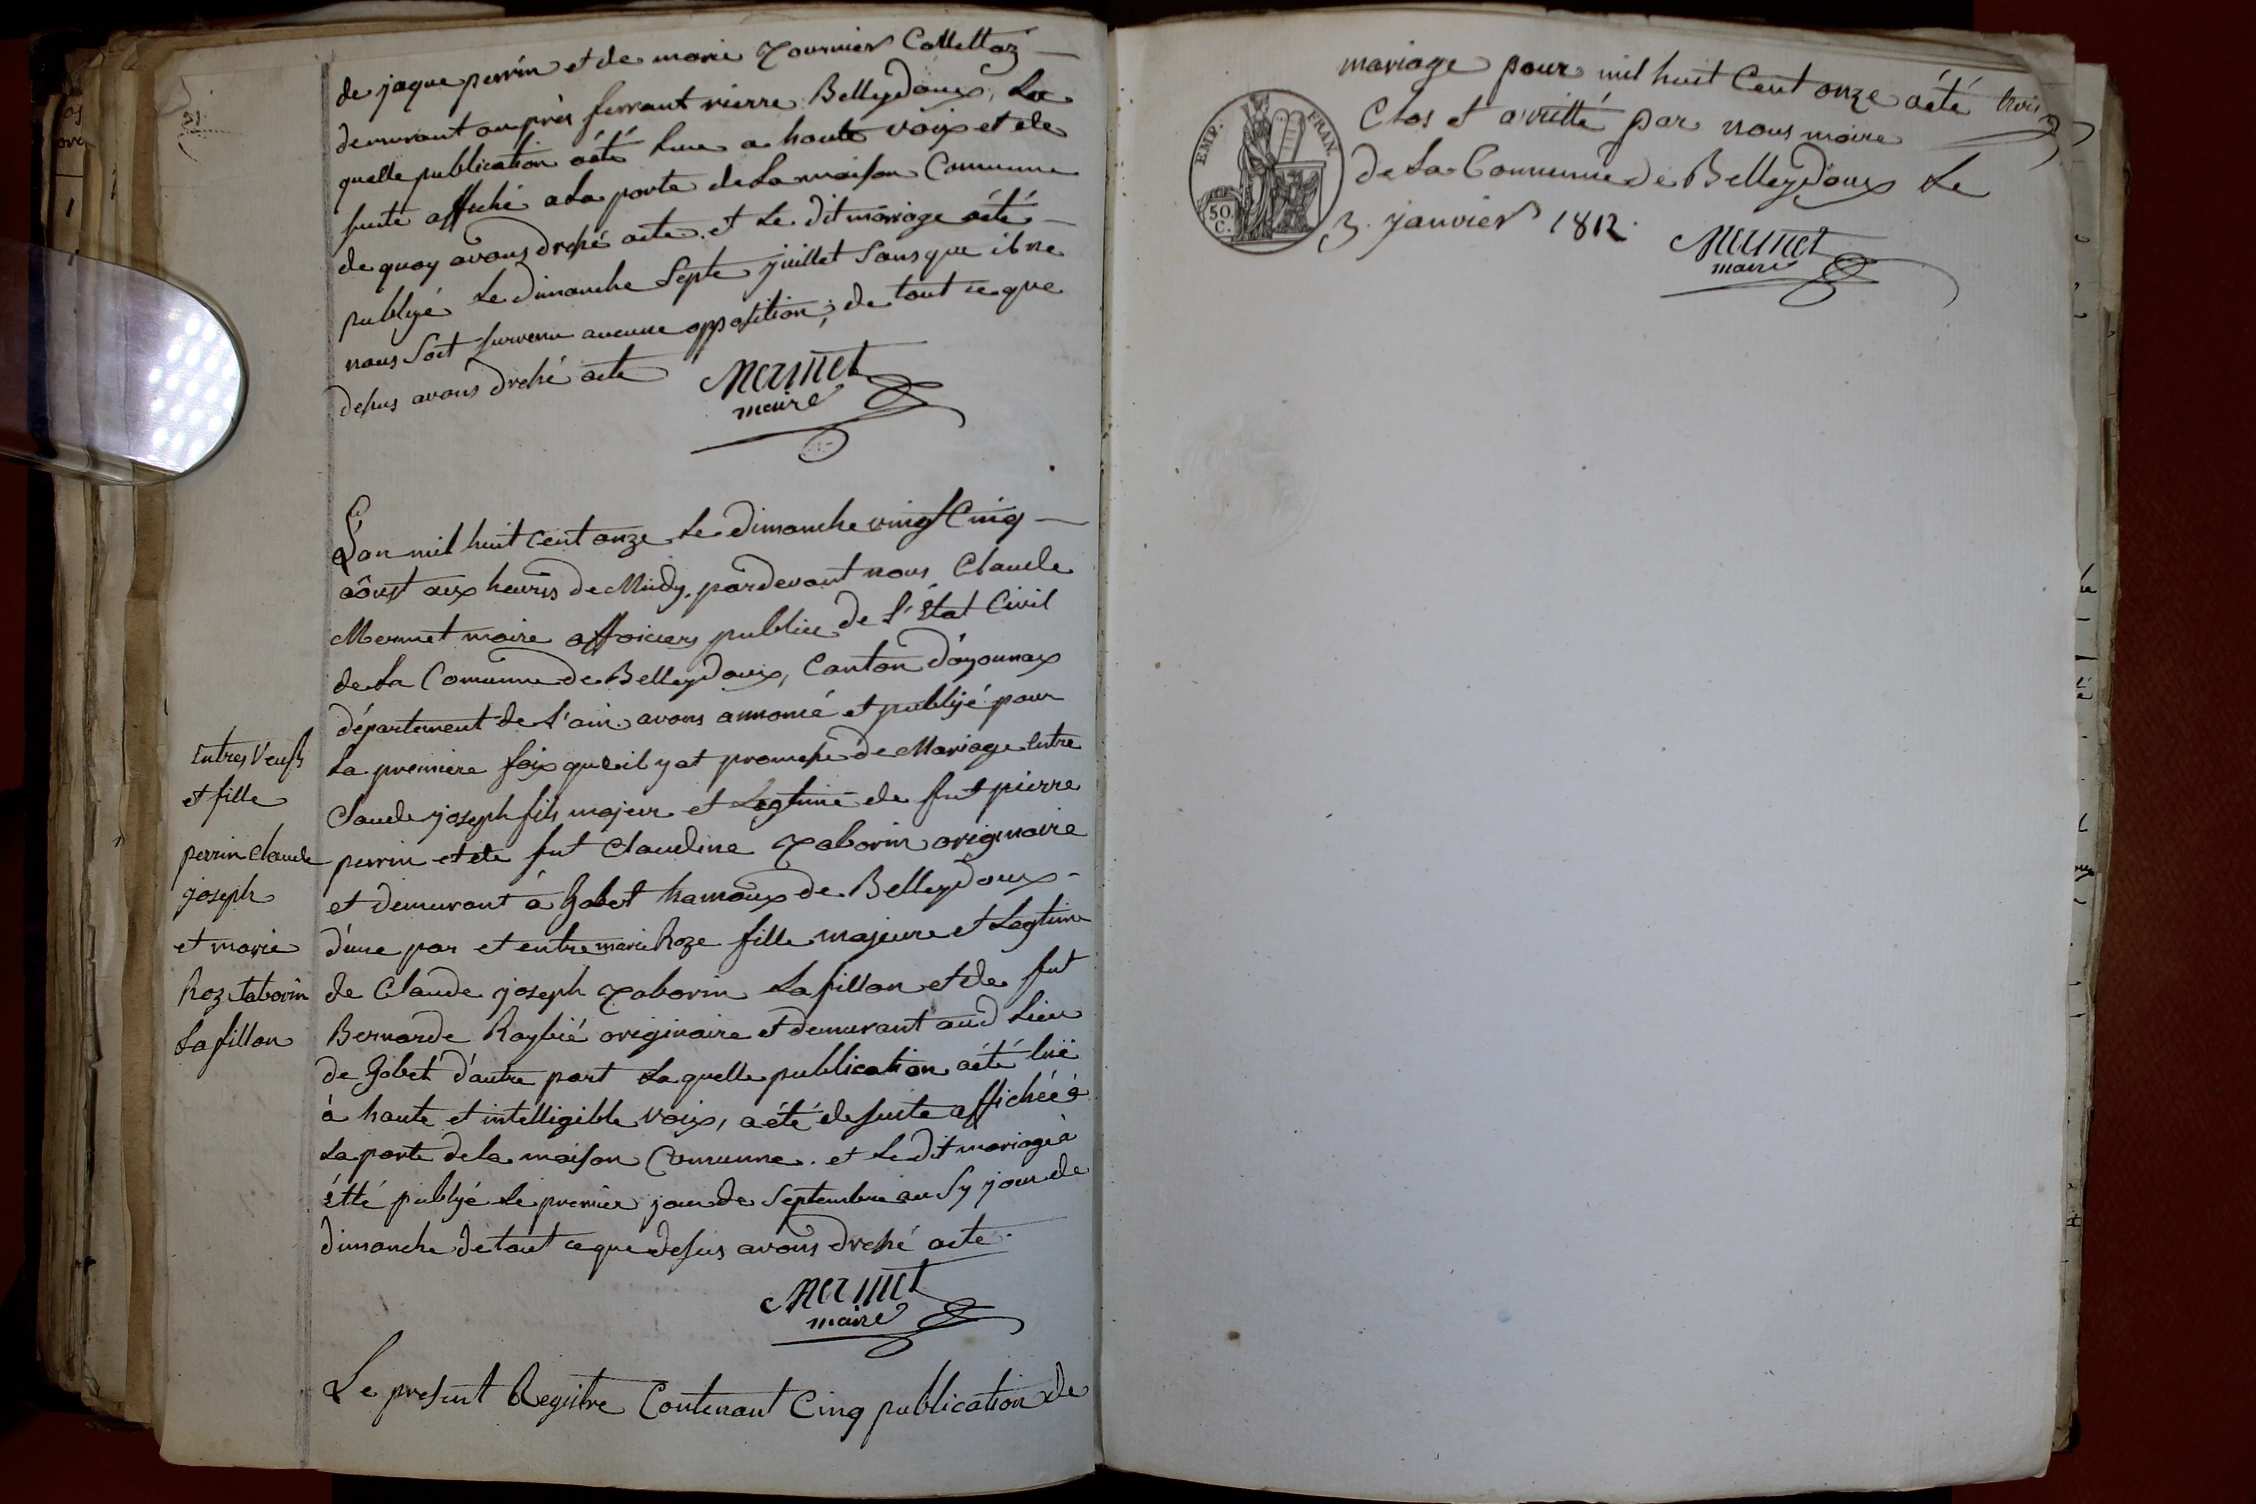 de jaque perrin et de marie Tournier Collettaz
demurant au près ferrant rierre Belleydoux, La
quelle publication aété Luue a haute voix et de
suite affiché ala porte de La maison Commune
de quoy avons dressé acte. et Le dit mariage aété
publiyé Le dimanche Septe juillet Sans que il ne
nous Soit survenu aucune opposition ; de tout ce que
dessus avons dressé acte
Mermet
maire
L'an mil huit Cent onze Le dimanche vingt Cinq
aôust aux heures de Midy. pardevant nous Claude
Mermet maire officiers publicc de L'état Civil
de La Comunne de Belleydoux, Canton d'oyonnax
département de L'ain avons annoncé et publiyé pour
La premiere foix qu'eil y at promesse de Mariage Entre
Claude joseph fils majeur et Legtime de fut pierre
perrin et de fut Claudine Taborin originaire
et demurant à Gobet hamaux de Belleydoux
d'une par et entre marie Roze fille majeure et Legtime
de Claude joseph Taborin Lafillon et de fut
Bernarde Raybié originaire et demurant aud Lieu
de Gobet d'autre part Laquelle publication aété luë
à haute et intelligible voix, aété de suite affichée à
La porte de la maison Comunne. et Le dit mariage à
étté publyé Le premier jour de Septembre au Sy jour de
dimanche de tout ce que dessus avons dressé acte.
Mermet
maire
Le present Registre Contenant Cinq publication de
Entres Veufs
et fille
perrin Claude
joseph
et marie
Roze taborin
Lafillon
mariage pour mil huit Cent onze aété trois
Clos et arretté par nous maire
de La Commune de Belleydoux Le
3 janvier 1812.
Mermet
maire
EMP. FRAN.
50
C.